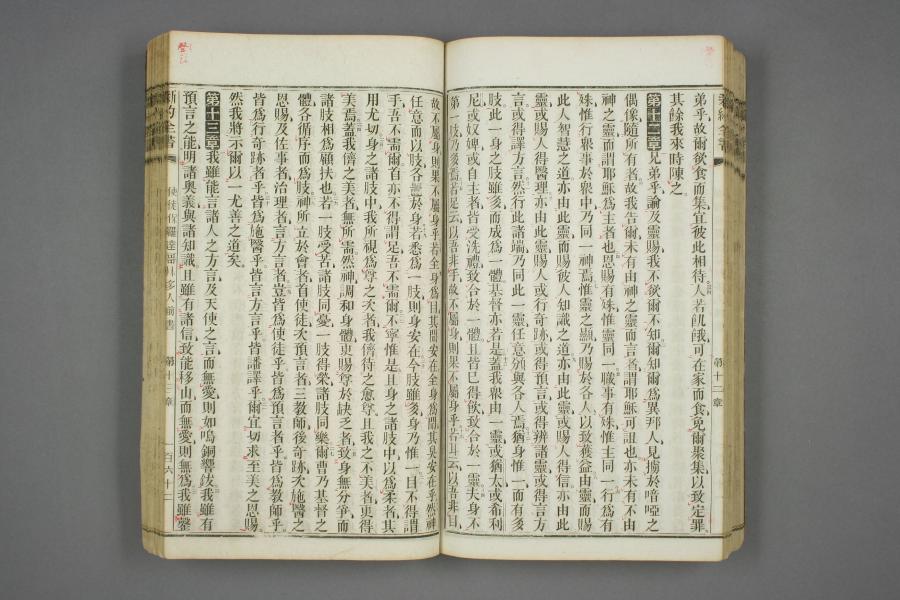 弟乎故爾欲食而集宜彼此相待人若飢餓可在家而食免爾聚集以致定罪
其餘我來時陳之
第十二章兄弟乎論及靈賜我不欲爾不知爾知爾為異邦人見擄於啞之
偶像隨所有者故我告爾未有由神之靈而言者謂耶穌可詛也亦未有不由
神之靈而謂耶穌為主者也恩賜有殊惟靈同一職事有殊惟主同一行為有
殊惟行眾事於眾中乃同一神焉惟靈之顯乃賜於各人以致獲益由靈而賜
此人智慧之道亦由此靈而賜彼人知識之道亦由此靈或賜人得信亦由此
靈或賜人得醫理亦由此靈賜人或行奇跡或得預言或得辨諸靈或得言方
言或得譯方言然行此諸端乃同此一靈任意別與各人焉猶身惟一而有多
肢此一身之肢雖多而成為一體基督亦若是蓋我眾由一靈或猶太或希利
尼或奴婢或自主者皆受洗禮致合於一體且皆已得飲致合於一靈夫身不
第一肢乃多焉若足云以吾非手故不屬身則果不屬身乎若耳云以吾非目
故不屬身則果不屬身乎若全身為目其聞安在全身為聞其臭安在乎然神
任意而以肢各置於身若悉為一肢則身安在今肢雖多身乃惟一目不得謂
手吾不需爾首亦不得謂足吾不需爾不寧惟是且身之諸肢中以為柔者其
用尤切身之諸肢中我所視為辱之者我儕待之愈尊且我之不美者更得
美焉蓋我儕之美者無所需然神調和身體更賜尊於缺乏者致身無分爭而
諸肢相為顧扶也若一肢受苦諸肢同憂一肢得榮諸肢同樂爾曹乃基督之
體各循序而為肢神所立於會者首使徒次預言者三教師後奇跡次施醫之
恩賜及佐事者治理者言方言者豈皆為使徒乎皆為預言者乎皆為教師乎
皆為行奇跡者乎皆為施醫乎皆言方言乎皆譯乎爾宜切求至美之恩賜
然我將示爾以一尤善之道矣
第十三章我雖能言諸人之方言及天使之言而無愛則如鳴銅響鈸我雖有
預言之能明諸奧義與諸知識且雖有諸信致能移山而無愛則無為我雖罄
新約全書
使徒保羅達哥林多人前書
第十三章
一百六十二
第十二章